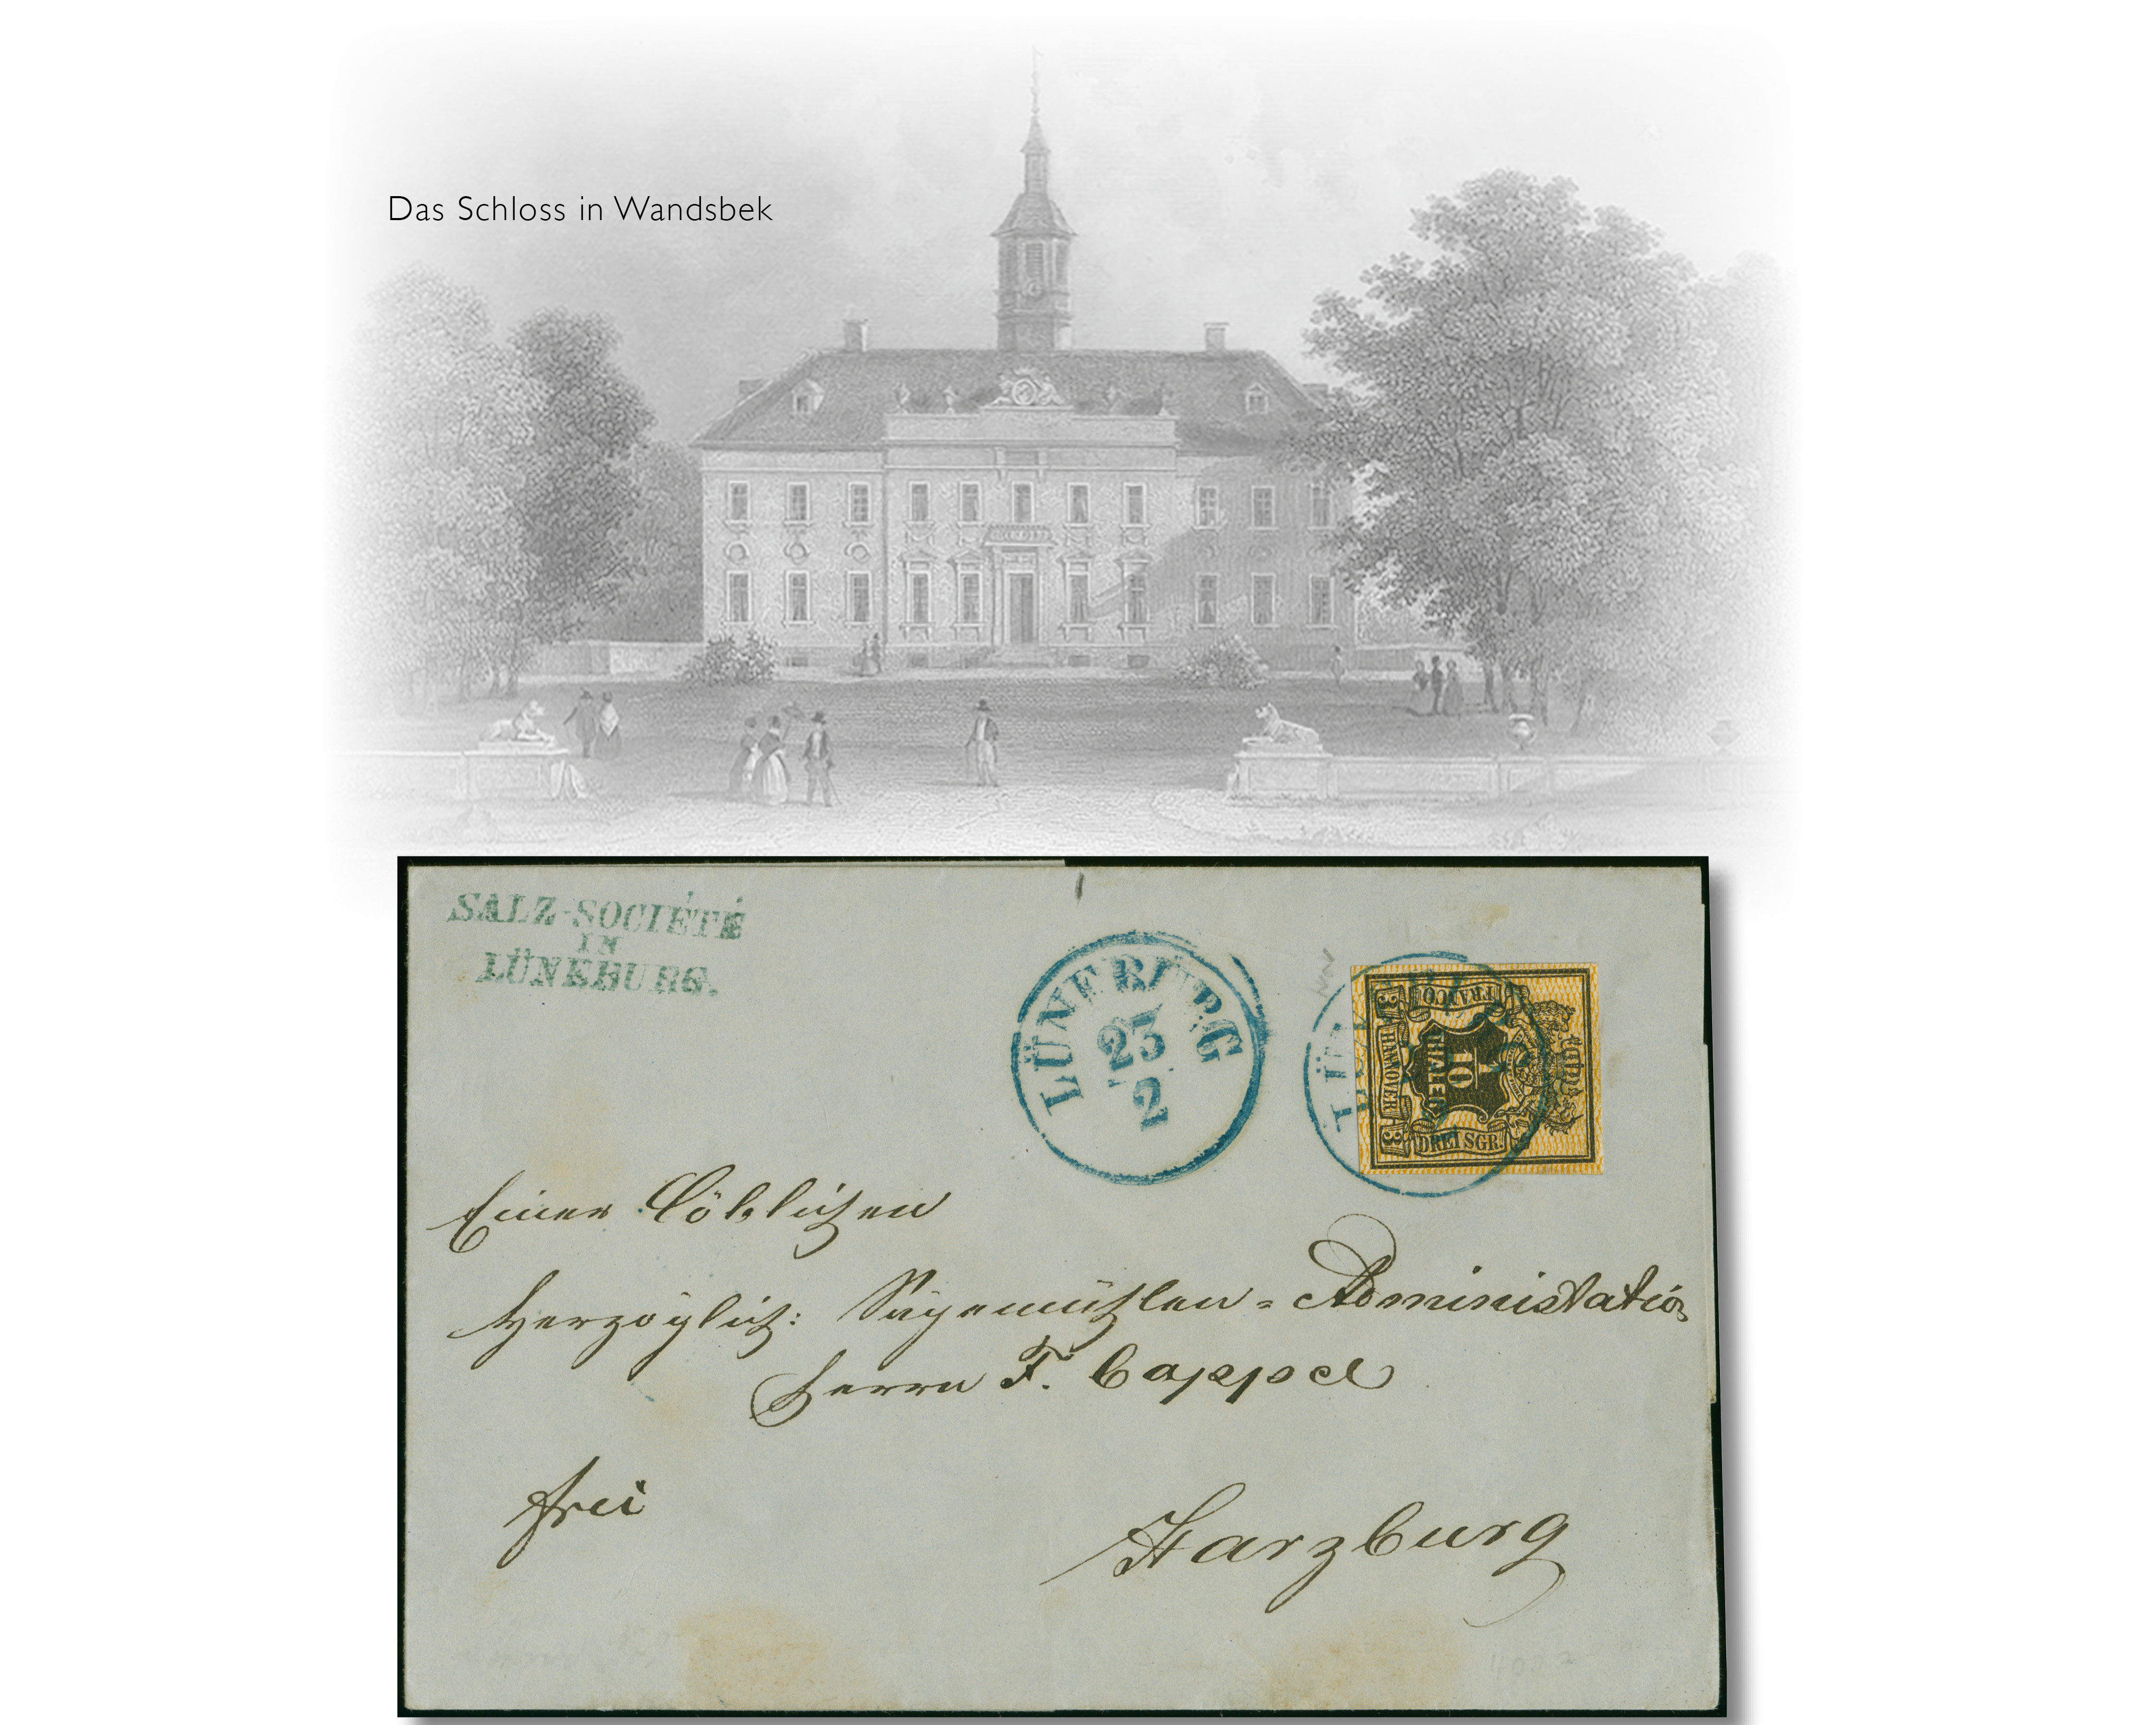 Das Schloss in Wandsbek
SALZ-SOCIÉTÉ
IN
LÜNEBURG.
LÜNEBURG
23
2
FRANCO
3 HANNOVER 3
1/10
THALER
DREI SGR.
Einer Löblichen
Herzoglich: Sägemühlen = Administration
Herrn F. Cappel
frei
Harzburg